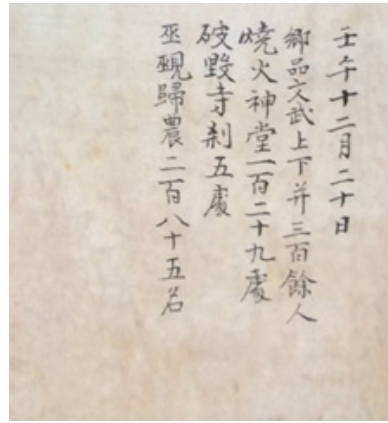 壬午十二月二十日
鄉品文武上下并三百餘人
燒火神堂一百二十九處
破毀寺刹五處
巫覡歸農二百八十五名